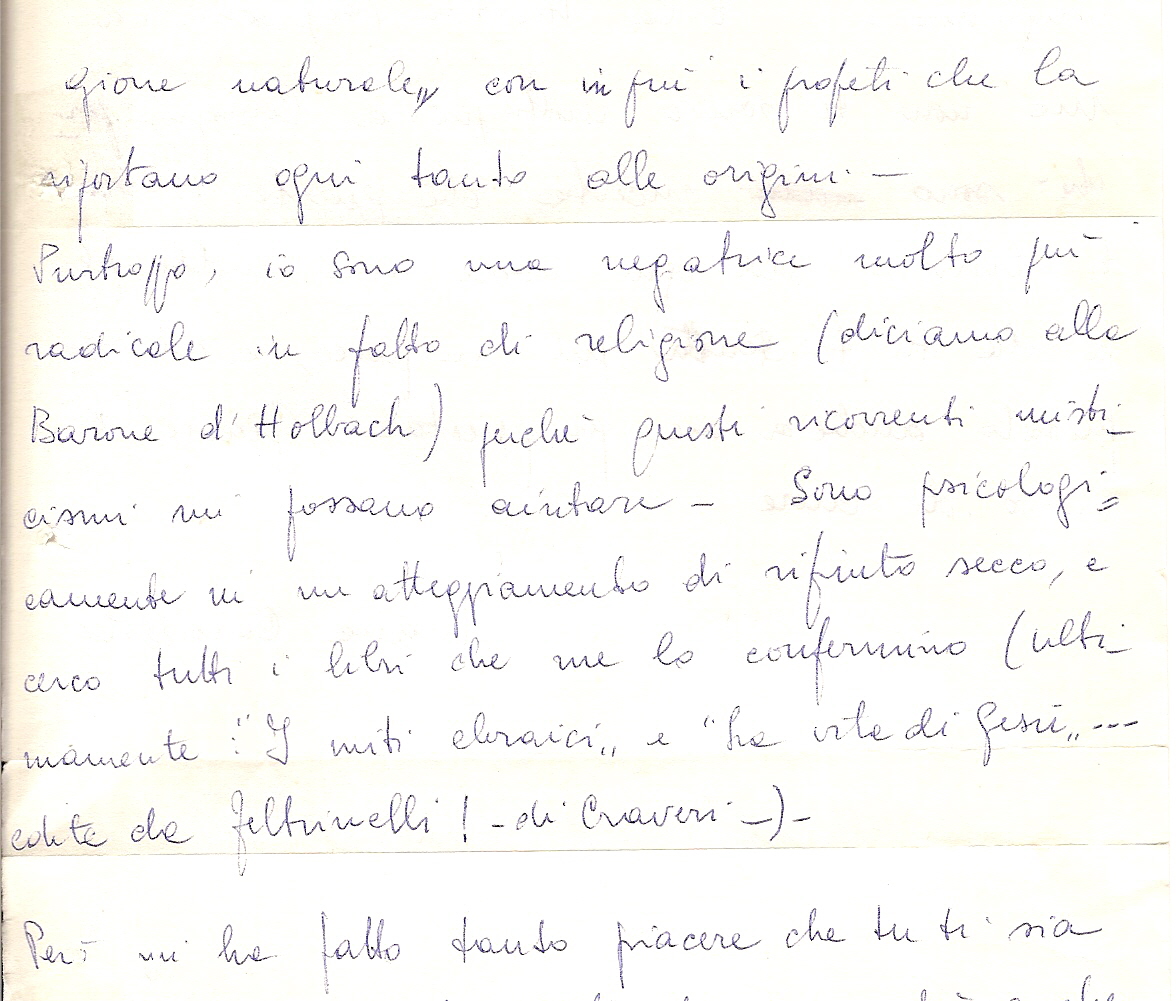 gione naturale„ con in più i profeti che la
riportano ogni tanto alle origini. —
Purtroppo, io sono una negatrice molto più
radicale in fatto di religione (diciamo alla
Barone d'Holbach) perché questi ricorrenti misti_
cismi mi possano aiutare — Sono psicologi=
camente in un atteggiamento di rifiuto secco, e
cerco tutti i libri che me lo confermino (ulti_
mamente : "I miti ebraici„ e "La vita di Gesù„ ---
edita da Feltrinelli ! - di Craveri —) -
Però mi ha fatto tanto piacere che tu ti sia